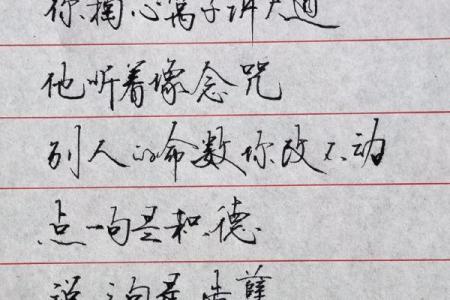 你掏心窝子讲大道
他听着像念咒
别人的命数你改不动
点一句是积德
说三句是造孽